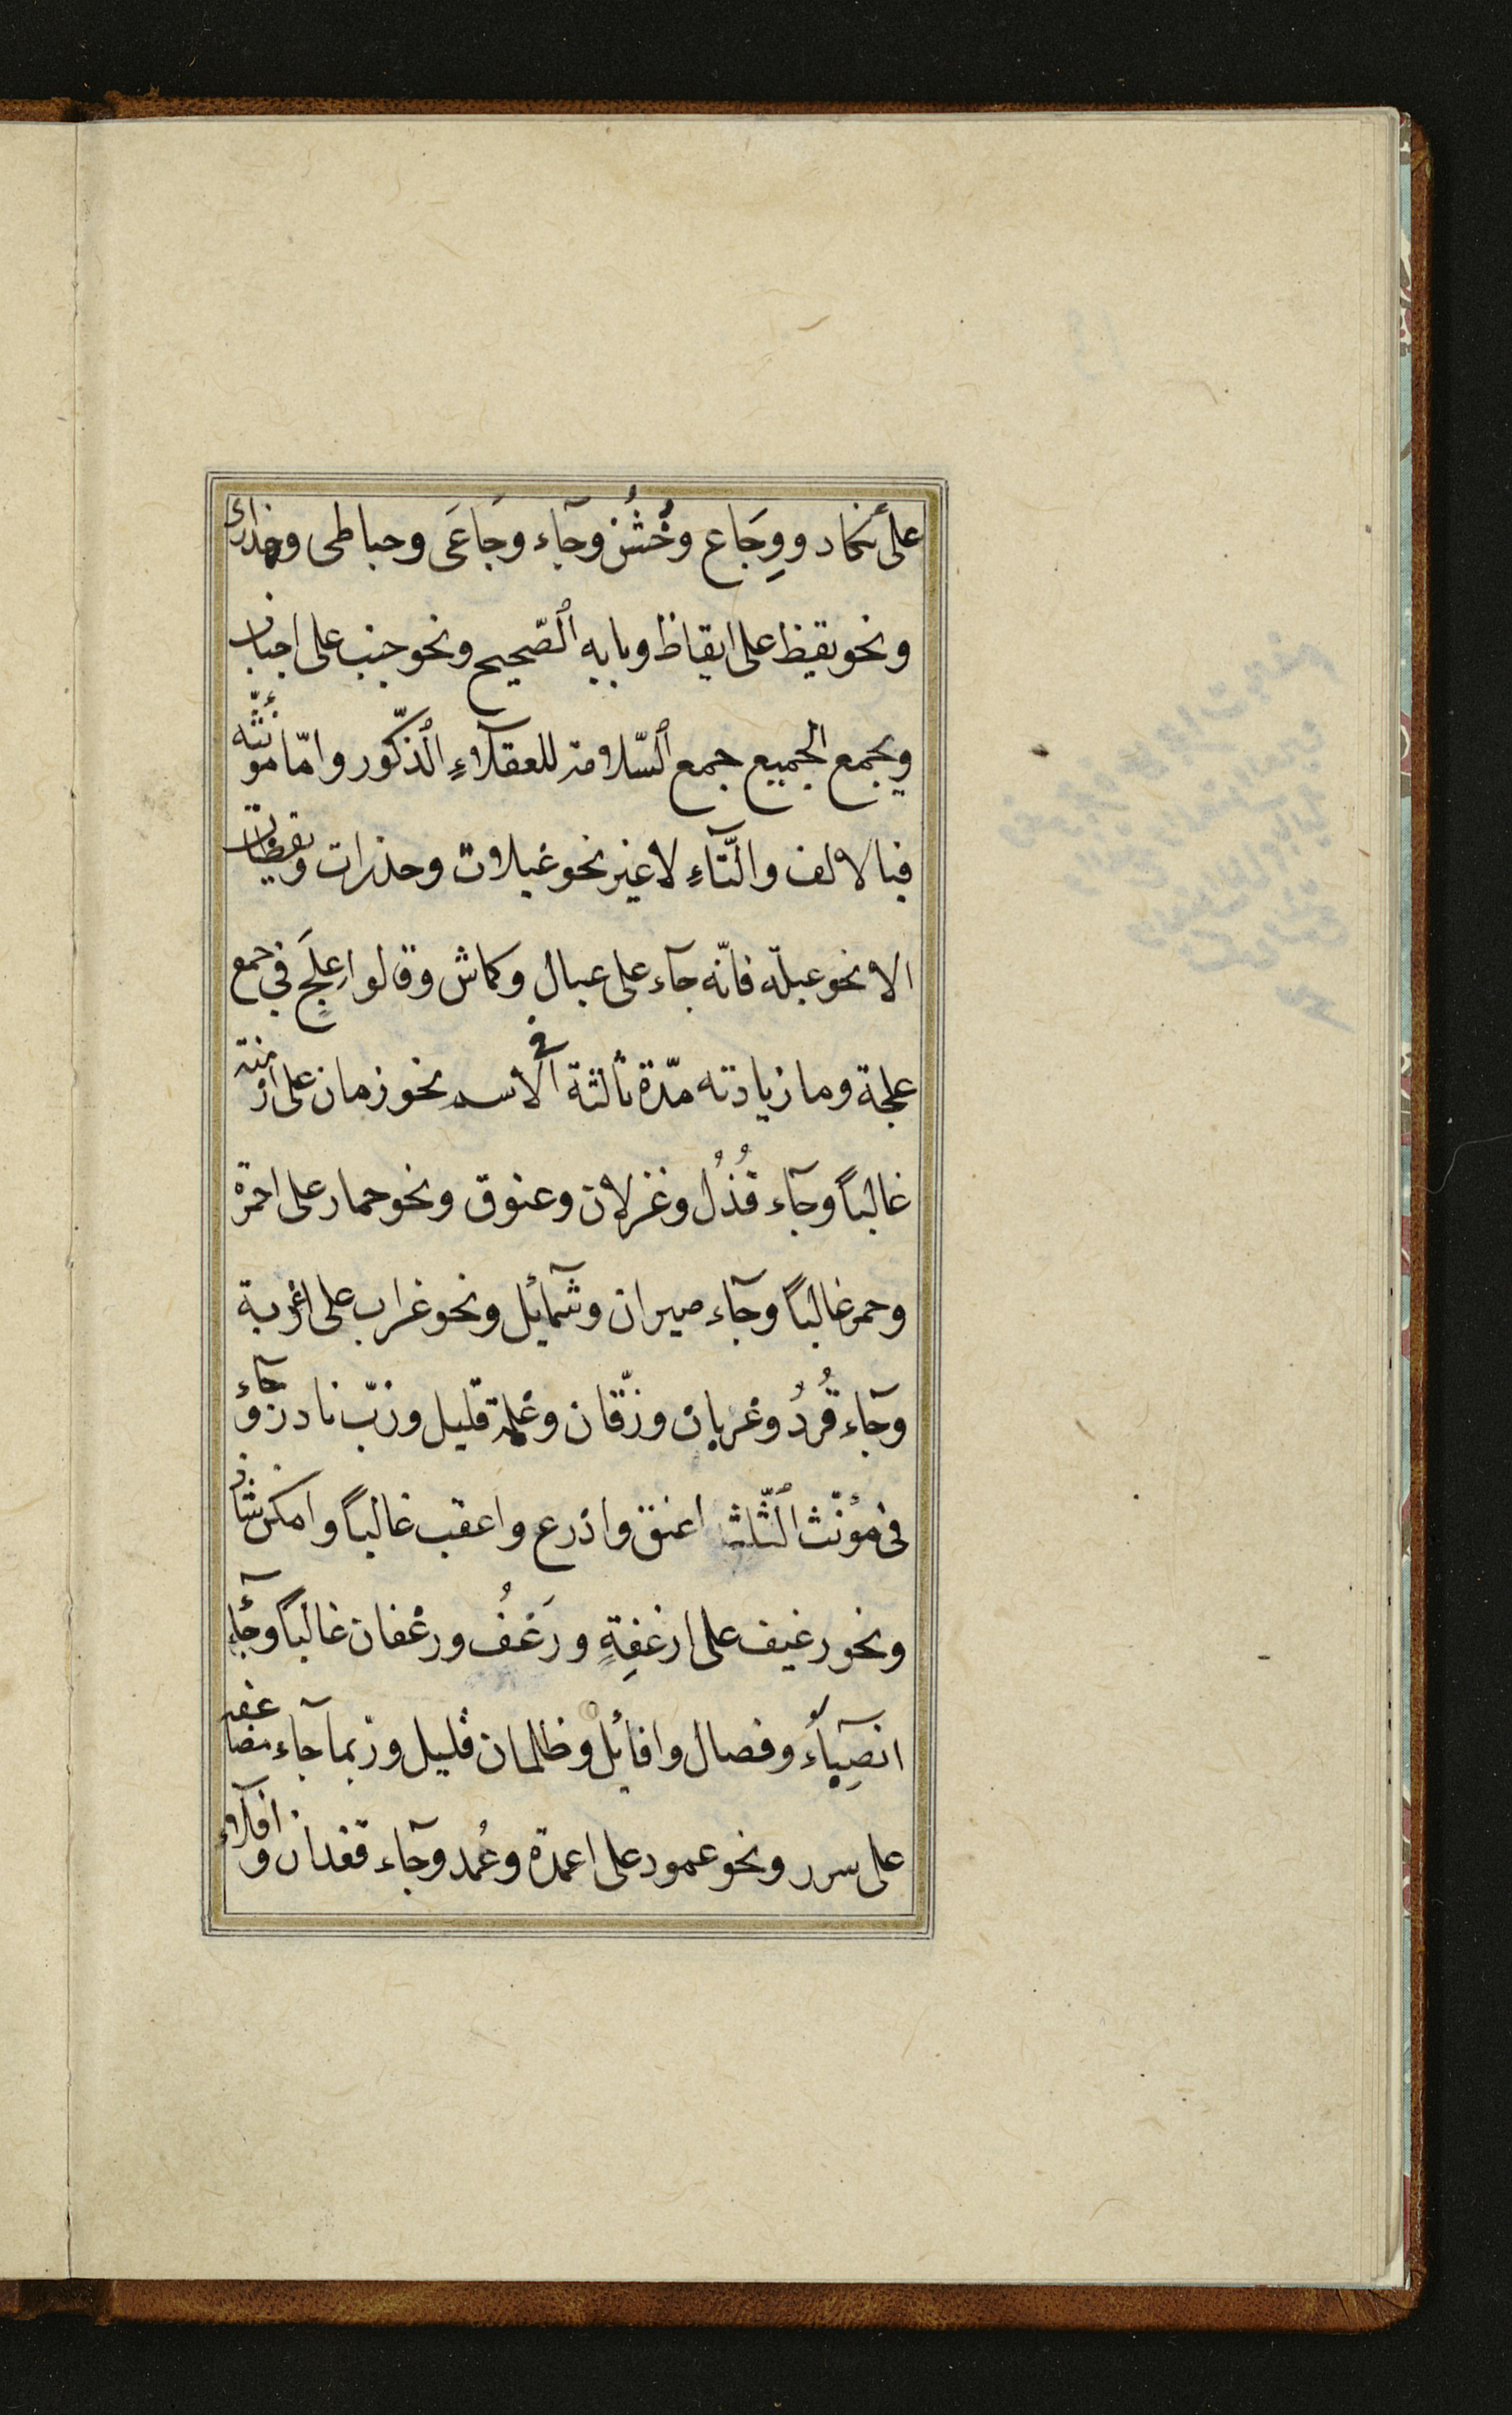 على نكاد ووِجَاع وخُشُن وجآء وَجَاعَى وحباطى وحذارى
ونحو يقيظ على ايقاظ وبابه الصّحيح ونحو جنب على اجناب
ويجمع الجميع جمع السّلامة للعقلآءِ الذّكور وامّا مؤنّثه
فبالالف والتّآءِ لا غير نحو عبلات وحذرات ويقظات
الا نحو عبلة فانّه جآء على عبال وكماش وقالوا عِلَج في جمع
علجة وما زيادته مدّة ثالثة في الاسم نحو زمان على ازمنة
غالباً وجآء قُذُل وغزلان وعنوق ونحو حمار على احمرة
وحمر غالباً وجآء صيران وشمآئل ونحو غراب على اغربة
وجآء قُرُدُ وغربان وزقّان وغلمة قليل وذبّ نادر وجآء
فى مؤنّث الثّلثة اعنق واذرع واعقب غالباً وامكن شاذ
ونحو رغيف على ارغفِةٍ ورَغُفُ ورغفان غالباً وجآء
انصِبآءُ وفصال وافائل وظلمان قليل وربما جآء مضاعفه
على سرر ونحو عمود على اعمدة وعُمد وجآء قعدان وافلآء